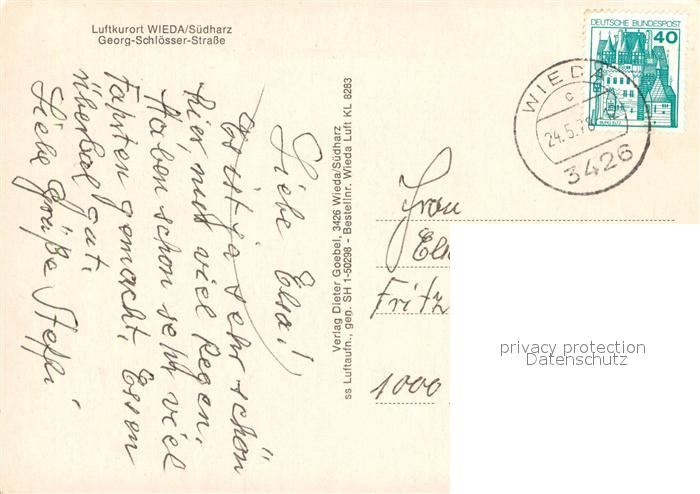 Luftkurort WIEDA/Südharz
Georg-Schlösser-Straße
Liebe Elsa!
Es ist ja sehr schön
hier, nur viel Regen.
Haben schon sehr viel
Fahrten gemacht. Essen
überall gut.
Liebe Grüße Steffi
Verlag Dieter Goebel, 3426 Wieda/Südharz
ss Luftaufn., gen. SH 1-50298 - Bestellnr. Wieda Luft KL 8283
DEUTSCHE BUNDESPOST
40
BURG ELTZ
WIEDA
c
24.5.78
3426
Frau
Els
Fritz
1000
privacy protection
Datenschutz